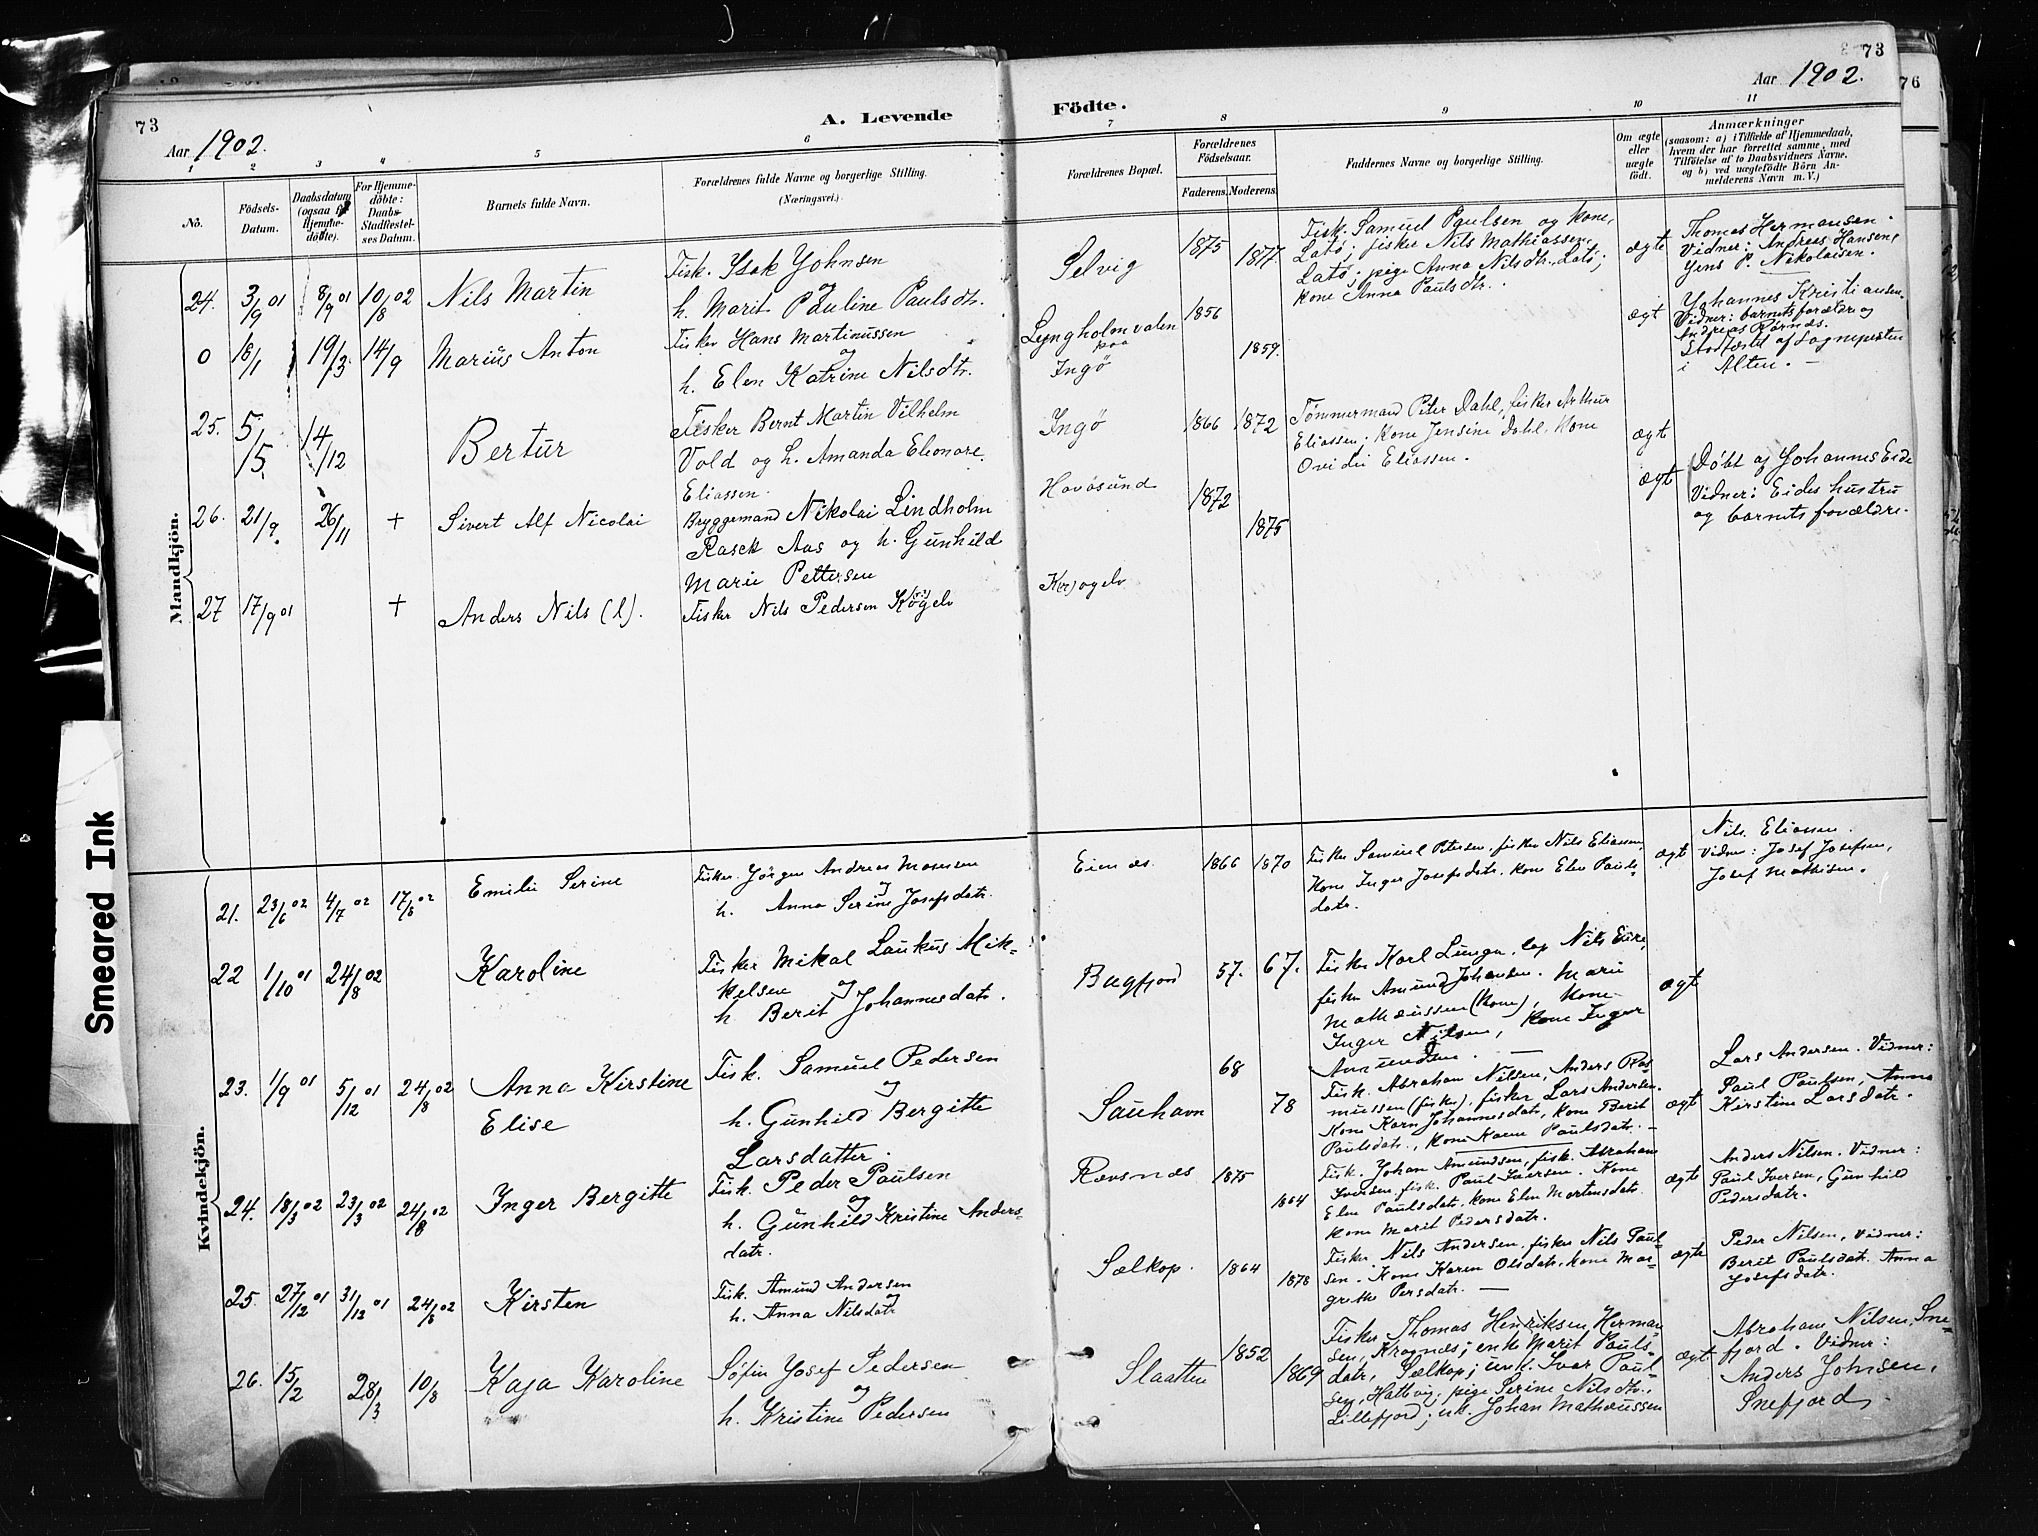 73
Aar 1902.
A. Levende
Födte.
73
Aar 1902.
76
1
2
3
4
5
6
7
8
9
10
11
No.
Födsels-
Datum.
Daabsdatum
(ogsaa f
Hjemme-
döbte).
For Hjemme-
döbte:
Daabs-
Stadfæstel-
ses Datum.
Barnets fulde Navn.
Forældrenes fulde Navne og borgerlige Stilling.
(Næringsvei.)
Forældrenes Bopæl.
Forældrenes
Födselsaar.
Faderens.
Moderens.
Faddernes Navne og borgerlige Stilling.
Om ægte
eller
uægte
født.
Anmærkninger
(saasom: a) i Tilfælde af Hjemmedaab,
hvem der har forrettet samme, med
Tilföielse af to Daabsvidners Navne,
og b) ved uægtefödte Börn An-
melderens Navn m. V.)
Mandkjön.
24. 3/9 01 8/9 01 10/8 02 Nils Martin
Fisk. Isak Johnsen
og
h. Marit Pauline Paulsdtr.
Selvig
1875 1877.
Fisk. Samuel Paulsen og kone,
Latø; fisker Nils Mathiassen,
Latø; pige Anna Nilsdtr. Latø;
kone Anna Paulsdtr.
ægte
Thomas Hermansen.
Vidner: Andreas Hansen,
Jens P. Nikolaisen.
0 18/1 19/3 14/9 Marius Anton
Fisker Hans Martinussen
og
h. Elen Katrine Nilsdtr.
Lyngholmvalen
paa
Ingö
1856 1859.
ægt
Johannes Kristiansen.
Vidner: barnets forældre og
Andreas Rörnæs.
Stadfæstet af Sognepresten
i Alten.
25. 5/5 14/12 Bertur
Fisker Bernt Martin Vilhelm
Vold og h. Amanda Eleonore
Eliassen.
Ingö
1866 1872
Tømmermand Peter Dahl, fisker Arthur
Eliassen; kone Jensine Dahl. Kone
Eliassen.
ægt
26. 21/9 26/11 + Sivert Alf Nicolai
Bryggemand Nikolai Lindholm
Rasch Aas og h. Gunhild
Marie Pettersen
Havösund
1872 1875
ægt
Döbt af Johannes Eide
Vidner: Eides hustru
og barnets forældre.
27 17/9 01 + Anders Nils (l).
Fisker Nils Pedersen
Kvindekjön.
21. 23/6 02 4/7 02 17/8 02 Emilie Serine
Fisker Jörgen Andreas Mosesen
og
h. Anna Serine Josefsdatr.
1866 1870
Fisker Samuel Petersen, fisker Nils Eliassen,
Kone Inger Josefsdatr. kone Elen Pauls-
datr.
ægt
Nils Eliassen.
Vidner: Josef Josefsen,
Josef Mathisen.
22 1/10 01 24/8 02 Karoline
Fisker Mikal Laukus Mik-
kelsen og
h Berit Johannesdatr.
Bagfjord
57. 67.
Fisker Karl
fisker Amund Johansen. Marie
Matheussen (kone), kone
Inger Nilsen, kone Inger
Amundsen.
ægt
23. 1/9 01 5/12 01 24/8 02 Anna Kirstine
Elise
Fisk. Samuel Pedersen
og
h. Gunhild Bergitte
Larsdatter.
Sauhavn
68 78
Fisk. Abraham Nilsen, Anders Ras-
mussen (fisker), fisker Lars Andersen.
Kone Karn Johannesdatr, kone Berit
Paulsdatr., kone Karen Paulsdatr.
ægt
Lars Andersen. Vidner:
Paul Paulsen, Anna
Kirstine Larsdatr.
24. 18/3 02 23/3 02 24/8 02 Inger Bergitte
Fisk. Peder Paulsen
og
h. Gunhild Kristine Anders-
datr.
Rævsnæs
1875 1864
Fisk. Johan Amundsen, fisk. Abraham
Iversen, fisk. Paul Iversen. Kone
Elen Paulsdatr. kone Elen Mortensdatr.
kone Marit Pedersdatr.
ægt
Anders Nilsen. Vidner:
Paul Iversen, Gunhild
Pedersdatr.
25. 27/12 01 31/12 01 24/8 02 Kirsten
Fisk. Amund Andersen
og
h. Anna Nilsdatr
Sælkop.
1864 1878
Fisker Nils Andersen, fisker Nils Paul-
sen. Kone Karen Olsdatr, kone Mar-
grethe Persdatr.
ægte
Peder Nilsen, Vidner:
Berit Paulsdatr. Anna
Josefsdatr.
26. 15/2 28/3 10/8 Kaja Karoline
Søfin Josef Pedersen
og
h. Kristine Pedersen
Slaatten
1852 1869
Fisker Thomas Henriksen Herman-
sen, Kragnæs; enke Marit Pauls-
datr, Sælkop; unk. Ivar Paul-
sen, Hatvig; pige Serine Nilsdtr.,
Lillefjord; uk. Johan Matheussen
ægt
Abraham Nilsen, Sne-
fjord. Vidner:
Anders Johnsen,
Snefjord
Smeared Ink